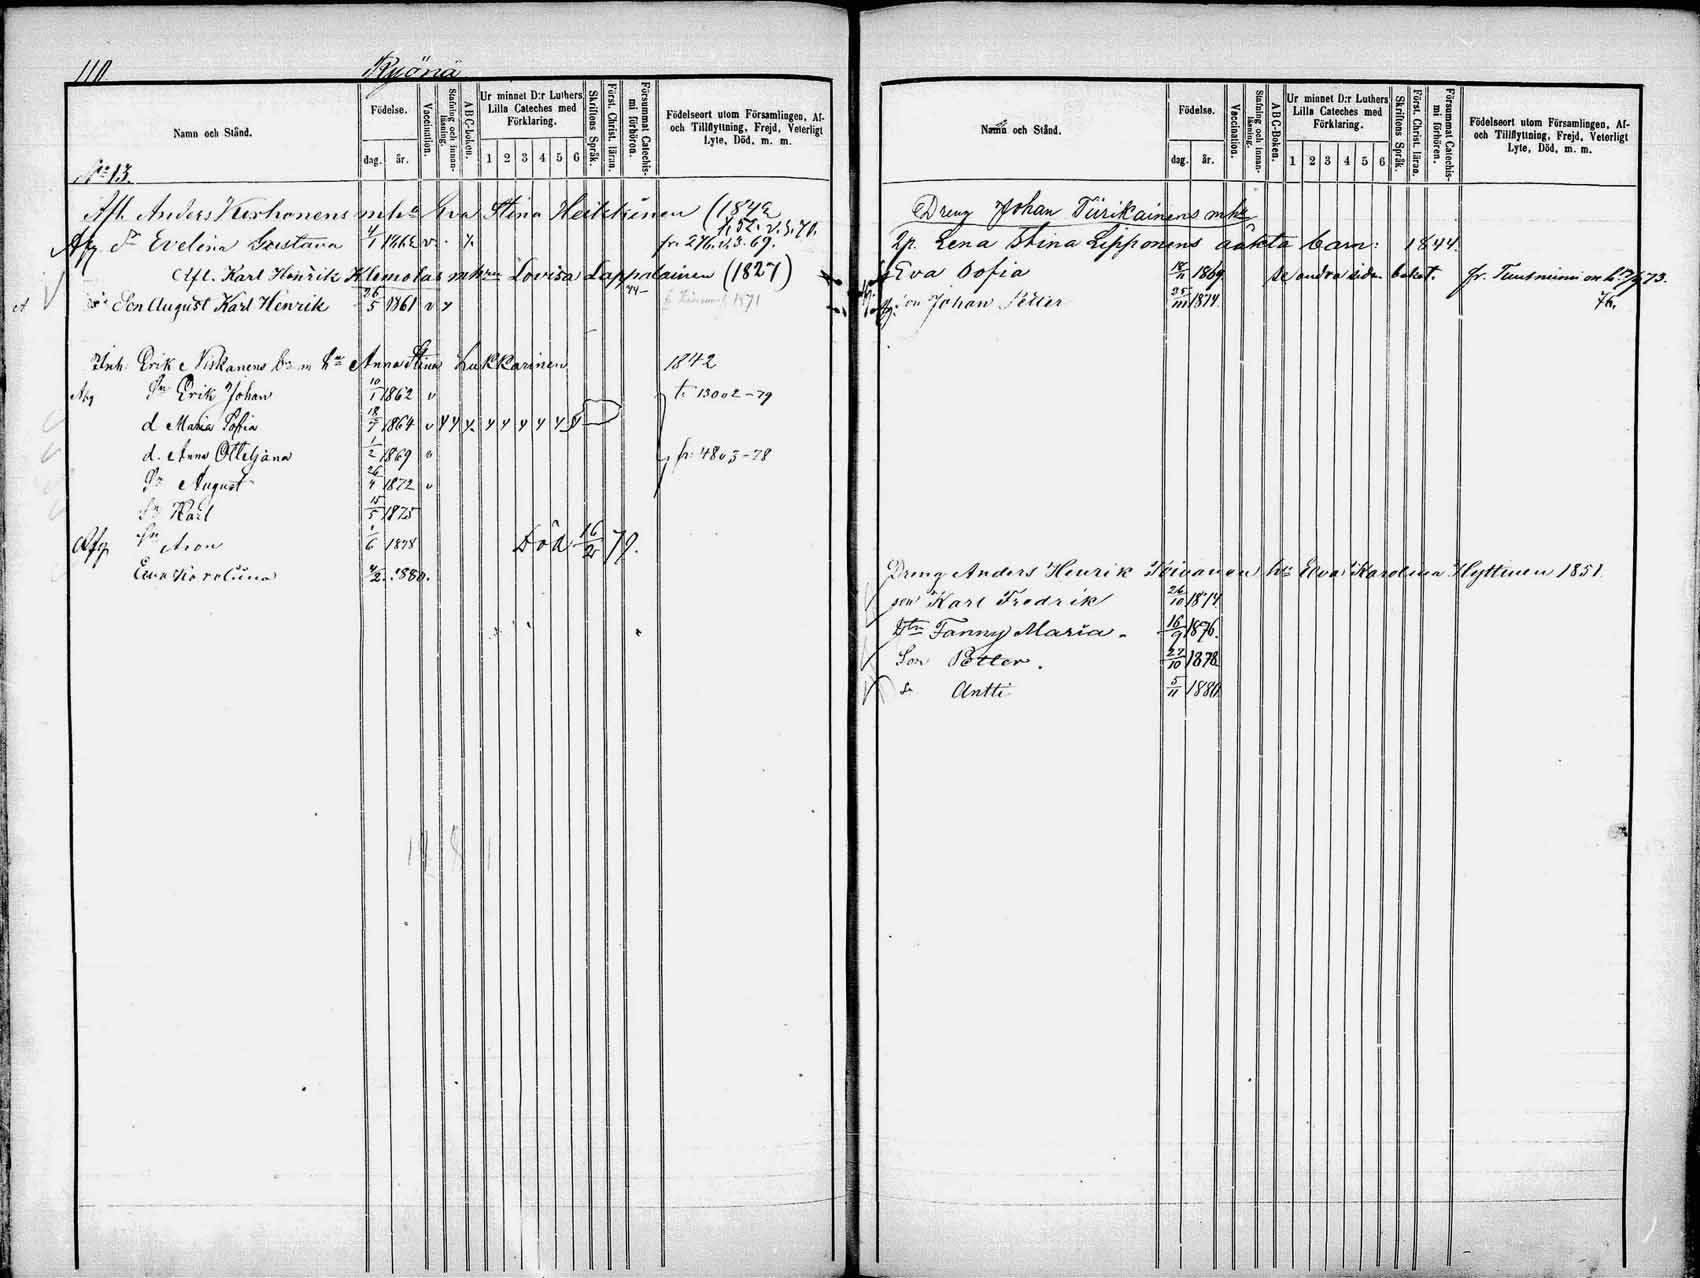 110
Ryönä
Namn och Stånd.
Födelse.
dag.
år.
Vaccination.
Stafning och innanläsning.
ABC-boken.
Ur minnet D:r Luthers Lilla Cateches med Förklaring.
1 2 3 4 5 6
Skriftens Språk.
Först. Christ. läran.
Försummat Catechismi förhören.
Födelseort utom Församlingen, Af- och Tillflyttning, Frejd, Veterligt Lyte, Död, m. m.
No 13.
Afl. Anders Korhonens Eva Stina Heikkinen (1842
f. 52. v. 3. 70.
Afg Evelina Gustava 4/1 v. fr. 276. v. 3. 69.
Afl. Karl Henrik Klemolas Lovisa Lappalainen (1827)
Son August Karl Henrik 26/5 1861 v 1871
Inh. Erik Niskanens Anna Stina Lukkarinen 1842
Afg Sn Erik Johan 10/1 1862 v t. 1300 2-79
d Maria Sofia 18/7 1864 v
d. Anna Ottiljana 1/2 1869 v fr. 480 3-78
Sn August 26/4 1872 v
Sn Karl 15/5 1875
Afg Sn Aron 1/6 1878 Död 16/2 79.
Eva Karolina 4/2 1880.
Namn och Stånd.
Födelse.
dag.
år.
Vaccination.
Stafning och innanläsning.
ABC-Boken.
Ur minnet D:r Luthers Lilla Cateches med Förklaring.
1 2 3 4 5 6
Skriftens Språk.
Först. Christ. läran.
Försummat Catechismi förhören.
Födelseort utom Församlingen, Af- och Tillflyttning, Frejd, Veterligt Lyte, Död, m. m.
Dreng Johan Tiirikainens
Lena Stina Lipponens oäkta barn: 1844.
Eva Sofia 1869 se andra sidan fr. 73.
76.
son Johan Petter 25/ 1874
Dreng Anders Henrik Toivanen h. Eva Karolina Hyttinen 1851
son Karl Fredrik 26/10 1874
Dtn Fanny Maria. 16/9 1876.
Son Petter. 27/10 1878
Sn Antti 5/11 1880